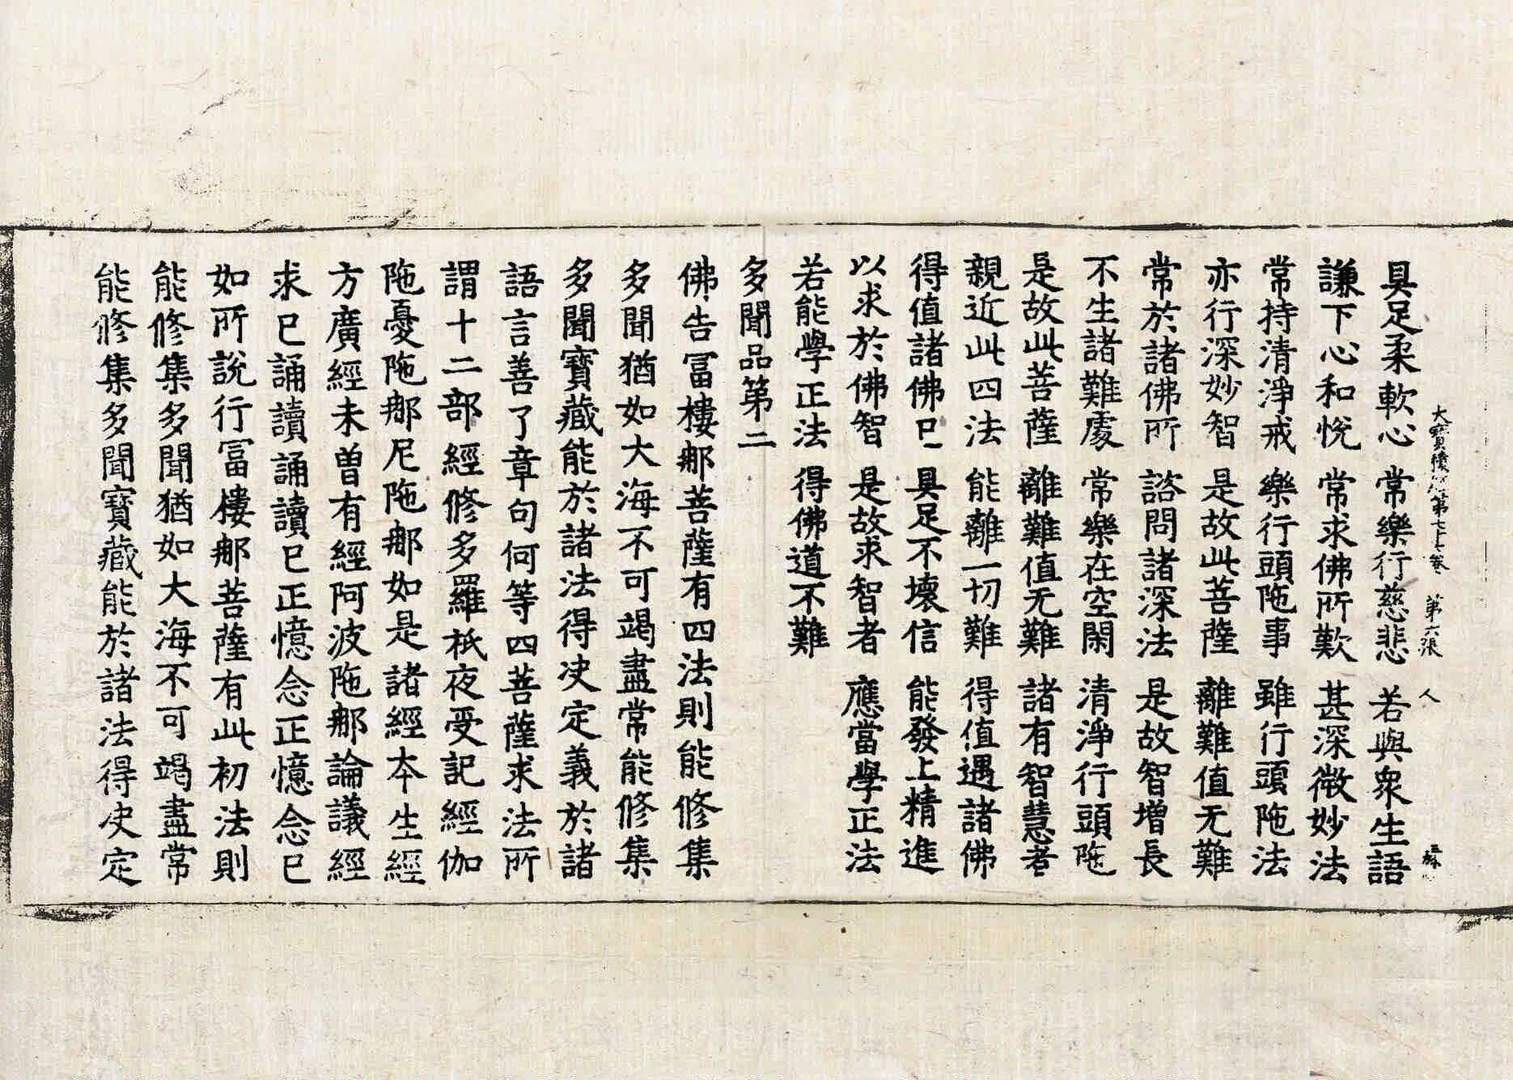 大寶積經第七十七卷 第六張 人
具足柔軟心 常樂行慈悲 若與衆生語
謙下心和悅 常求佛所歎 甚深微妙法
常持清淨戒 樂行頭陁事 雖行頭陁法
亦行深妙智 是故此菩薩 離難值无難
常於諸佛所 諮問諸深法 是故智增長
不生諸難處 常樂在空閑 清淨行頭陁
是故此菩薩 離難值无難 諸有智慧者
親近此四法 能離一切難 得值遇諸佛
得值諸佛已 具足不壞信 能發上精進
以求於佛智 是故求智者 應當學正法
若能學正法 得佛道不難
多聞品第二
佛告冨樓那菩薩有四法則能修集
多聞猶如大海不可竭盡常能修集
多聞寶藏能於諸法得决定義於諸
語言善了章句何等四菩薩求法所
謂十二部經修多羅祇夜受記經伽
陁憂陁那尼陁那如是諸經本生經
方廣經未曽有經阿波陁那論議經
求已誦讀誦讀已正憶念正憶念已
如所說行冨樓那菩薩有此初法則
能修集多聞猶如大海不可竭盡常
能修集多聞寶藏能於諸法得决定